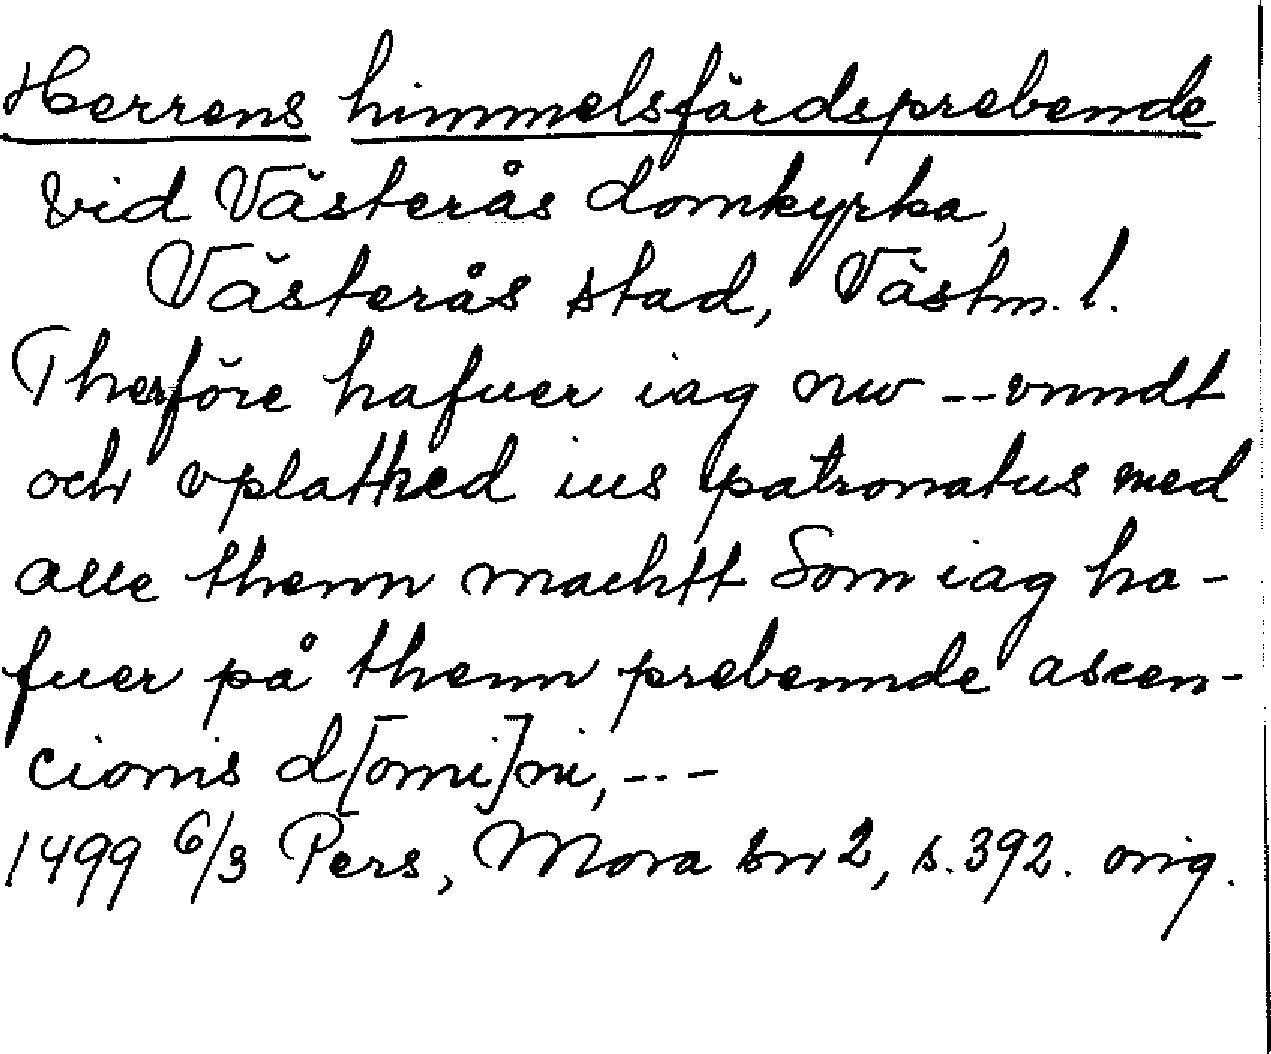 Herrens himmelsfärdsprebende
vid Västerås domkyrka,
Västerås stad, Västm. l.
Therföre hafuer iag nw -- vnndt
och vplathed ius patronatus med
alle thenn machtt Som iag ha-
fuer på thenn prebennde ascen-
cionis d[omi]ni, ---
1499 6/3 Pers, Mora sn 2, s. 392. orig.